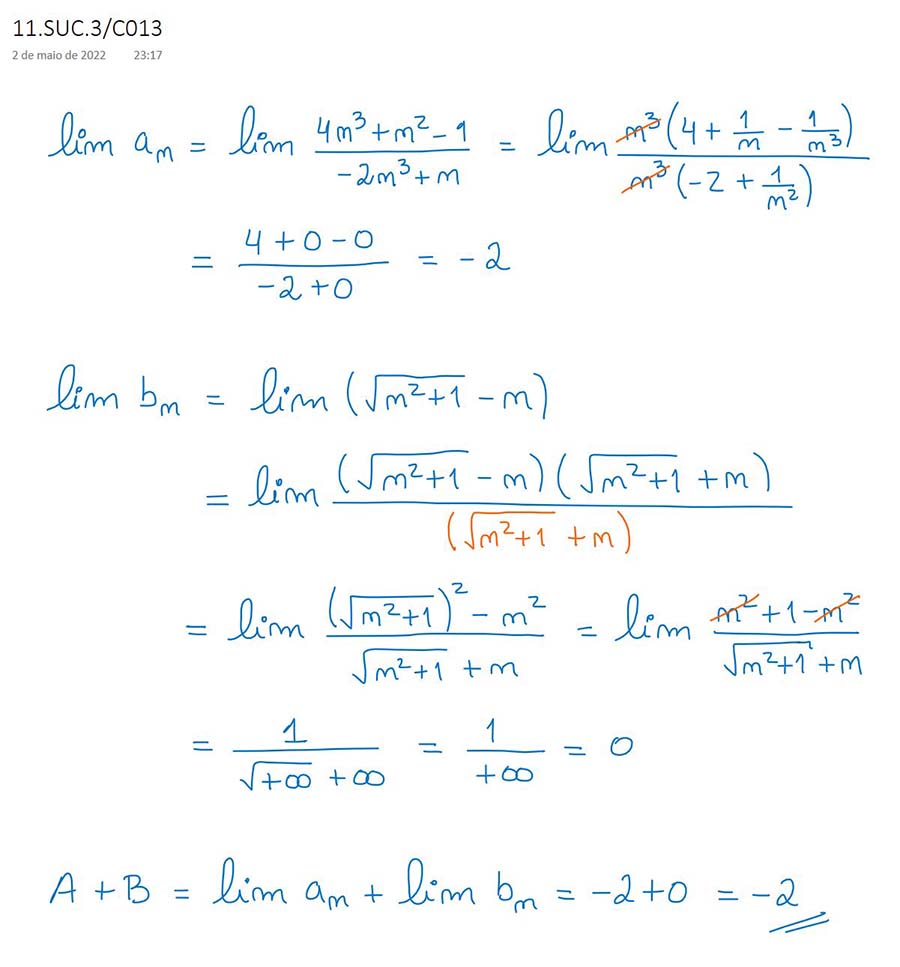 11.SUC.3/C013
2 de maio de 2022 23:17
lim aₙ = lim (4n³+n²-1)/(-2n³+n) = lim (n³(4+1/n-1/n³))/(n³(-2+1/n²))
= (4+0-0)/(-2+0) = -2
lim bₙ = lim (√(n²+1) - n)
= lim ((√(n²+1) - n)(√(n²+1) + n))/((√(n²+1) + n))
= lim ((√(n²+1))² - n²)/(√(n²+1) + n) = lim (n²+1-n²)/(√(n²+1) + n)
= 1/(√(+∞) + ∞) = 1/(+∞) = 0
A + B = lim aₙ + lim bₙ = -2+0 = -2